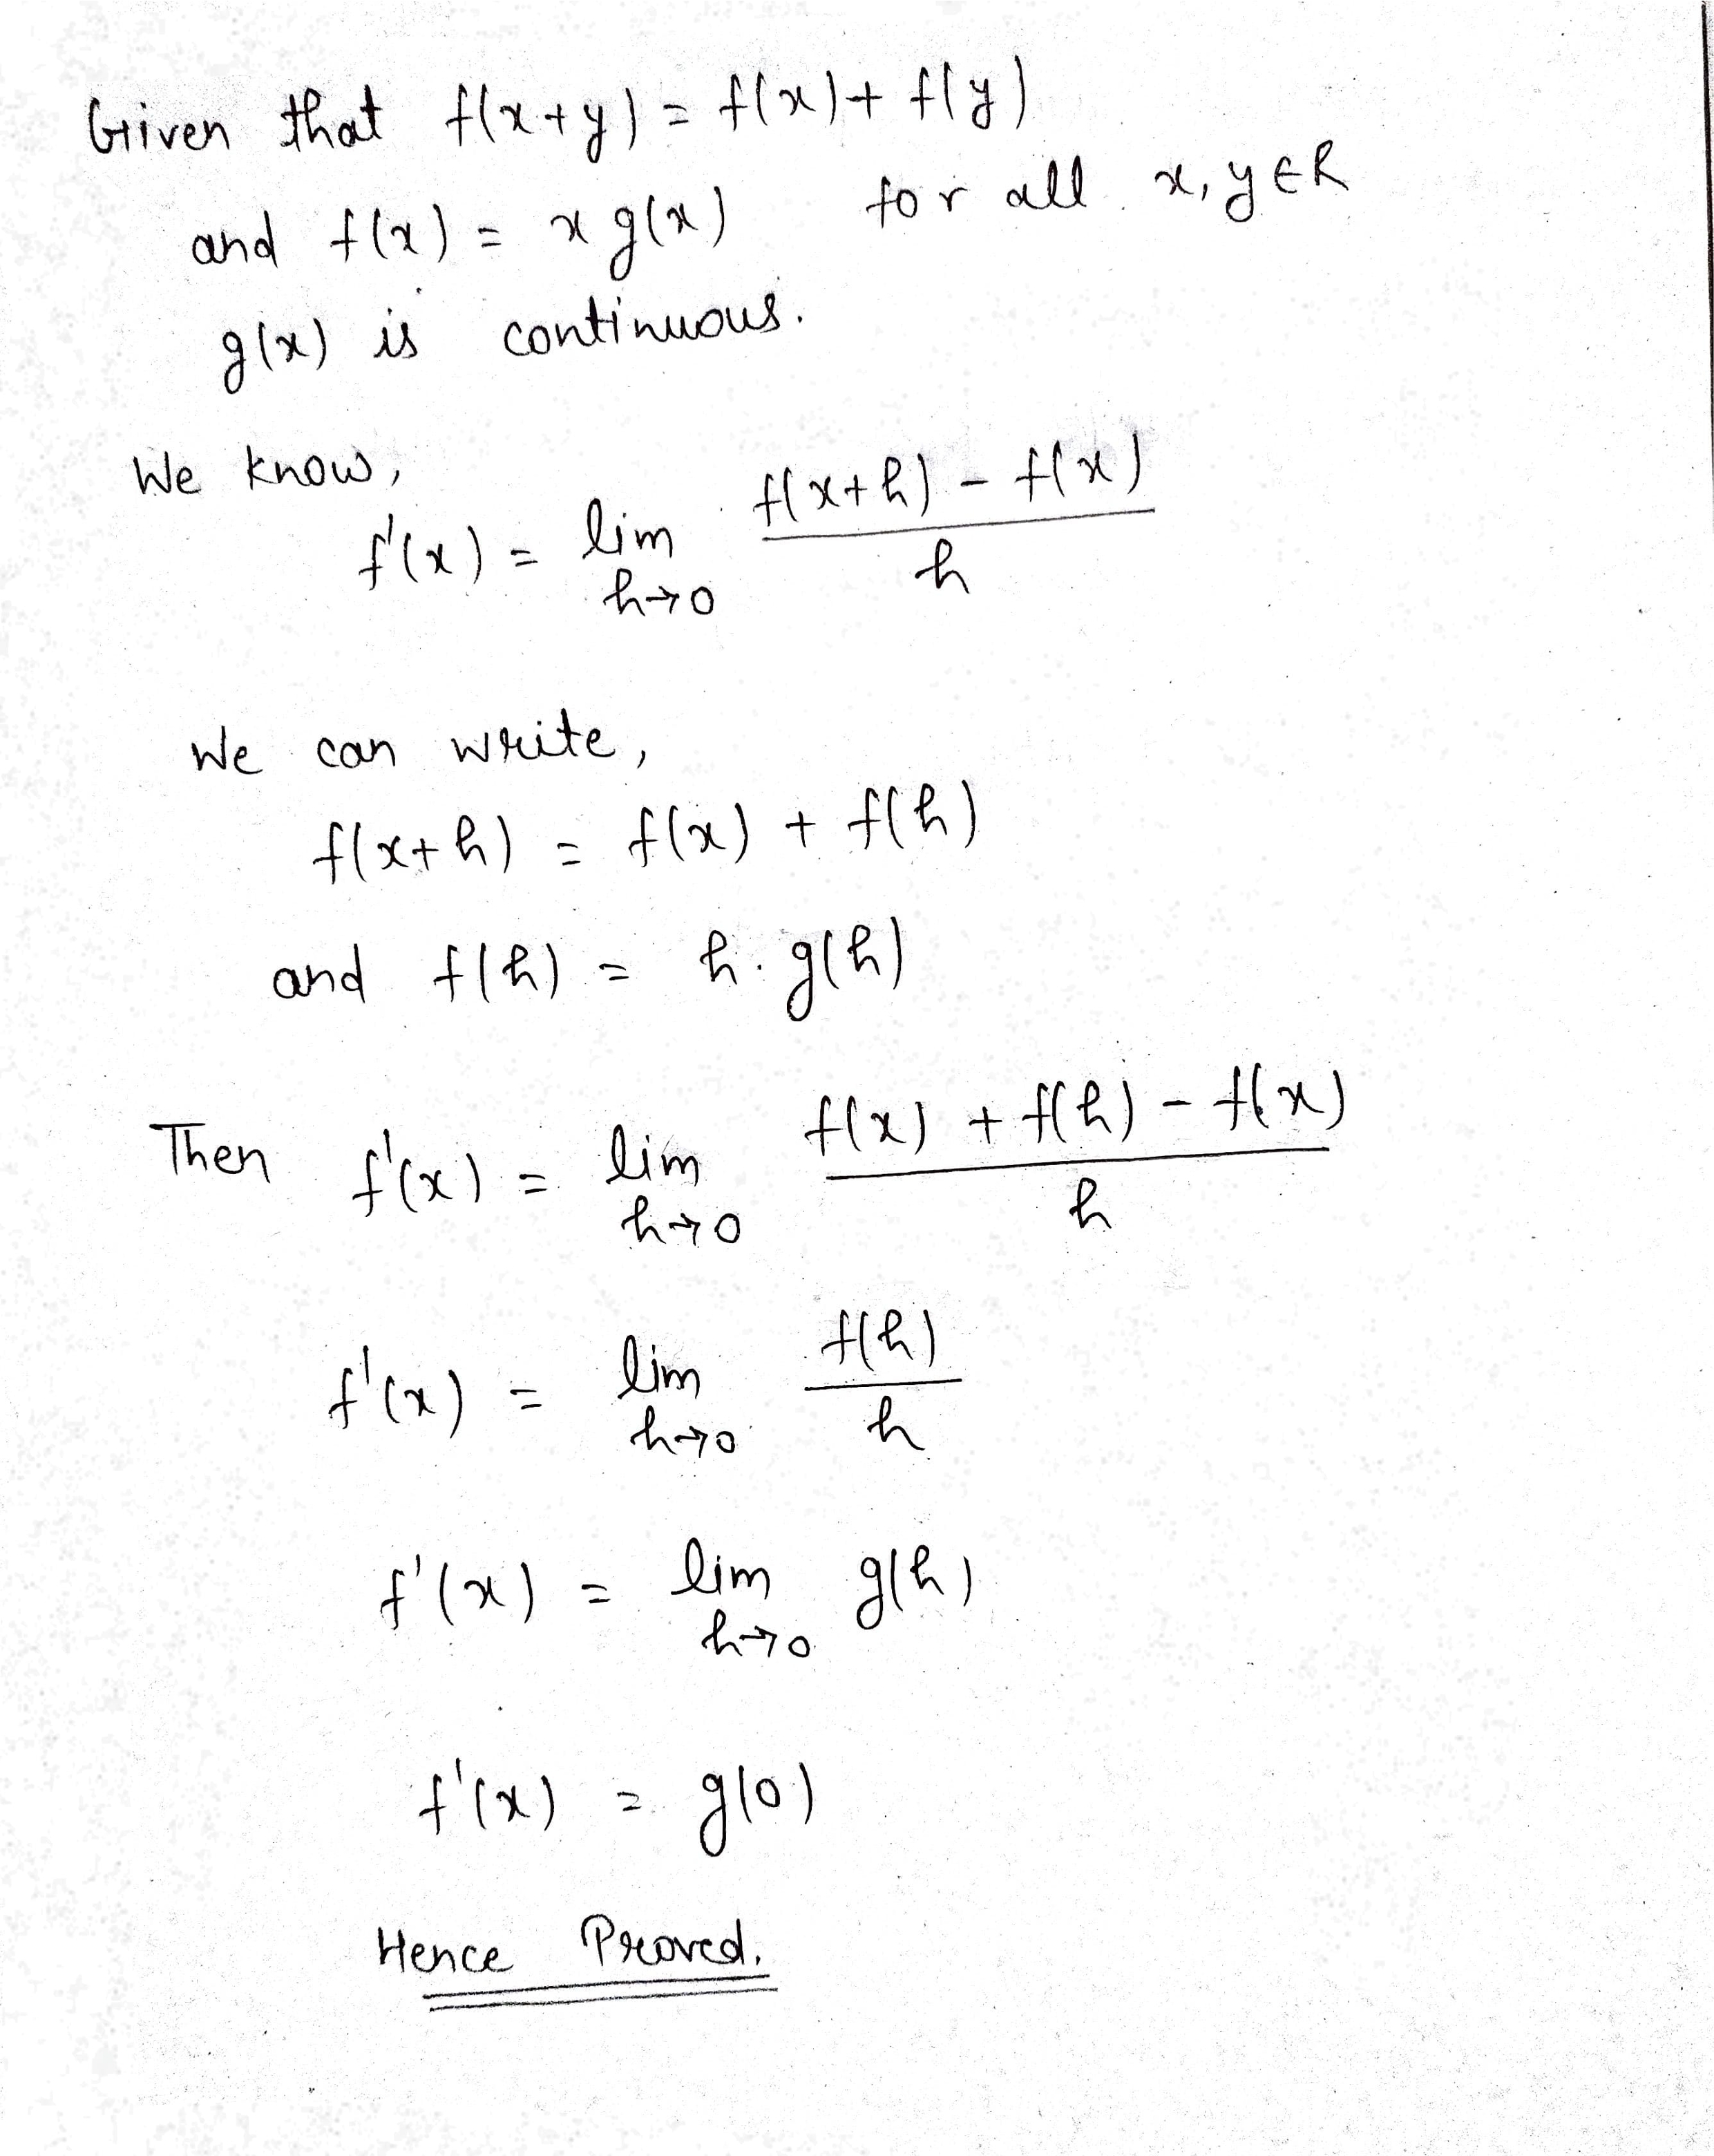 Given that f(x+y) = f(x) + f(y)
and f(x) = x g(x) for all x, y ∈ R
g(x) is continuous.
We know,
f'(x) = lim h→0 (f(x+h) - f(x)) / h
We can write,
f(x+h) = f(x) + f(h)
and f(h) = h. g(h)
Then f'(x) = lim h→0 (f(x) + f(h) - f(x)) / h
f'(x) = lim h→0 f(h) / h
f'(x) = lim h→0 g(h)
f'(x) = g(0)
Hence Proved.